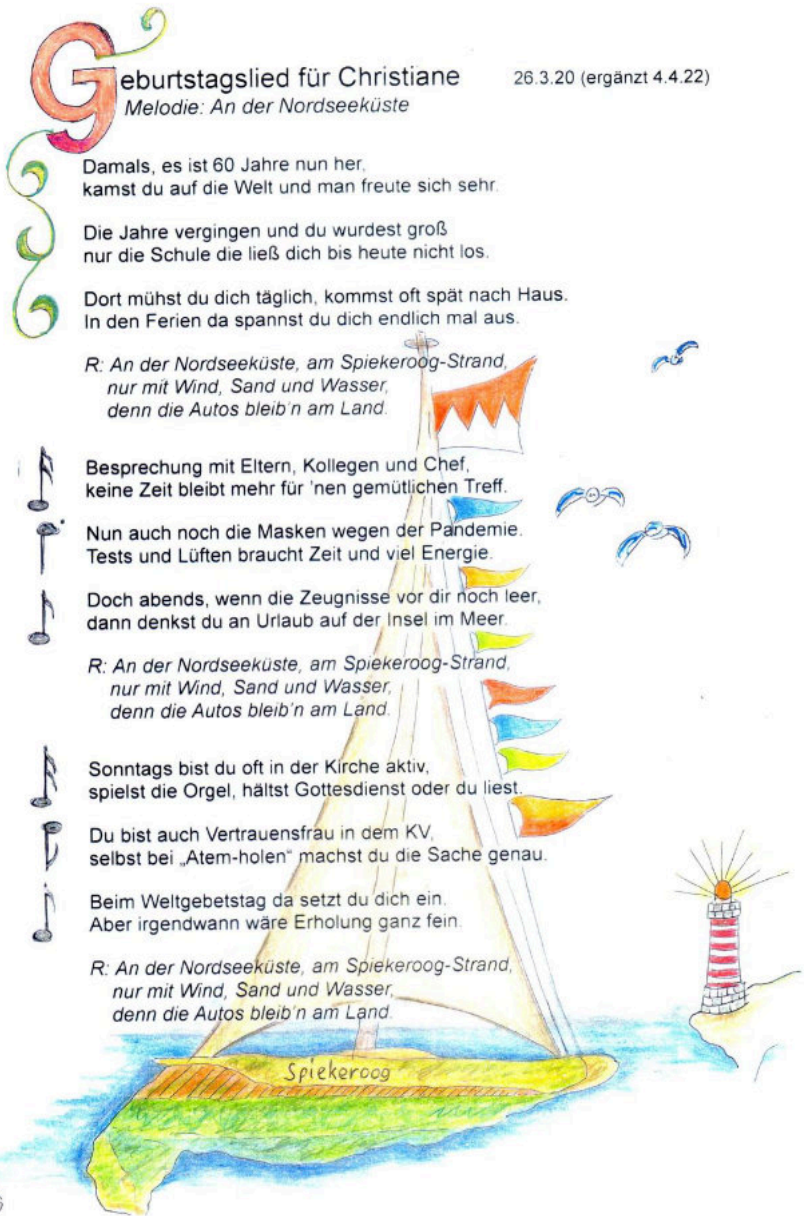 Geburtstagslied für Christiane 26.3.20 (ergänzt 4.4.22)
Melodie: An der Nordseeküste
Damals, es ist 60 Jahre nun her,
kamst du auf die Welt und man freute sich sehr.
Die Jahre vergingen und du wurdest groß
nur die Schule die ließ dich bis heute nicht los.
Dort mühst du dich täglich, kommst oft spät nach Haus.
In den Ferien da spannst du dich endlich mal aus.
R: An der Nordseeküste, am Spiekeroog-Strand,
nur mit Wind, Sand und Wasser,
denn die Autos bleib'n am Land.
Besprechung mit Eltern, Kollegen und Chef,
keine Zeit bleibt mehr für 'nen gemütlichen Treff.
Nun auch noch die Masken wegen der Pandemie.
Tests und Lüften braucht Zeit und viel Energie.
Doch abends, wenn die Zeugnisse vor dir noch leer,
dann denkst du an Urlaub auf der Insel im Meer.
R: An der Nordseeküste, am Spiekeroog-Strand,
nur mit Wind, Sand und Wasser,
denn die Autos bleib'n am Land.
Sonntags bist du oft in der Kirche aktiv,
spielst die Orgel, hältst Gottesdienst oder du liest.
Du bist auch Vertrauensfrau in dem KV,
selbst bei „Atem-holen" machst du die Sache genau.
Beim Weltgebetstag da setzt du dich ein.
Aber irgendwann wäre Erholung ganz fein.
R: An der Nordseeküste, am Spiekeroog-Strand,
nur mit Wind, Sand und Wasser,
denn die Autos bleib'n am Land.
Spiekeroog